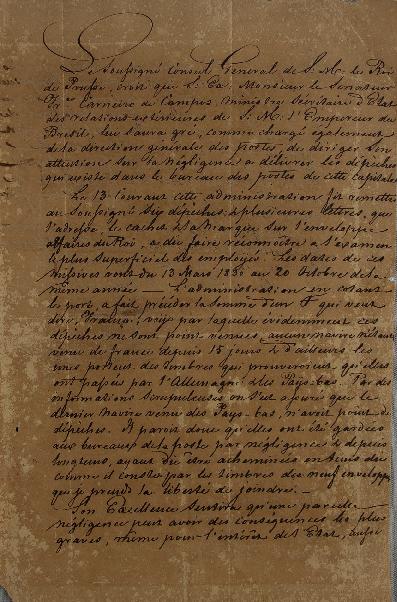 Le Soussigné Consul General de S. M. le Roi
de Prusse, croit que S. Ex. Monsieur le Senateur
Fr. Carneiro de Campus, Ministre Secrétaire d'Etat
des relations extérieures de S. M. l'Empereur du
Bresil, lui saura gré, comme chargé egalement
de la direction générale des postes, de diriger son
attention sur la négligence à délivrer les dépêches
qui existe dans le bureau des postes de cette capitale
Le 13 Courant cette administration fit remettre
au Soussigné dépêches & plusieures lettres, que
l'adresse, le cachet & la marque sur l'enveloppe
affaires du Roi, a du faire reconnoitre a l'examen
le plus superficiel des employés. Les dates de ces
missives vont du 13 Mars 1830 au 20 Octobre de la
même année — L'administration en
le port, a fait précéder la somme d'un F qui veut
dire, voie par laquelle évidemment ces
dépêches ne sont point venues, aucun navire n'étant
venu de france depuis 15 jours & d'ailleurs les
unes portent des timbres qui prouveroient qu'elles
ont passées par l'Allemagne & les Pays-bas. Par des
informations scrupuleuses on s'est assuré que le
dernier navire venu des Pays-bas, n'avoit point de
dépêches. Il paroit donc qu'elles ont été gardées
aux bureaux de la poste par négligence & depuis
longtems, ayant du être acheminées en tems du
comme il conste par les timbres des neuf enveloppes
que je prends la liberté de joindre. —
Son Excellence sentira qu'une pareille
négligence peut avoir des conséquences les plus
graves, même pour l'intérêt de l'Etat, aussi